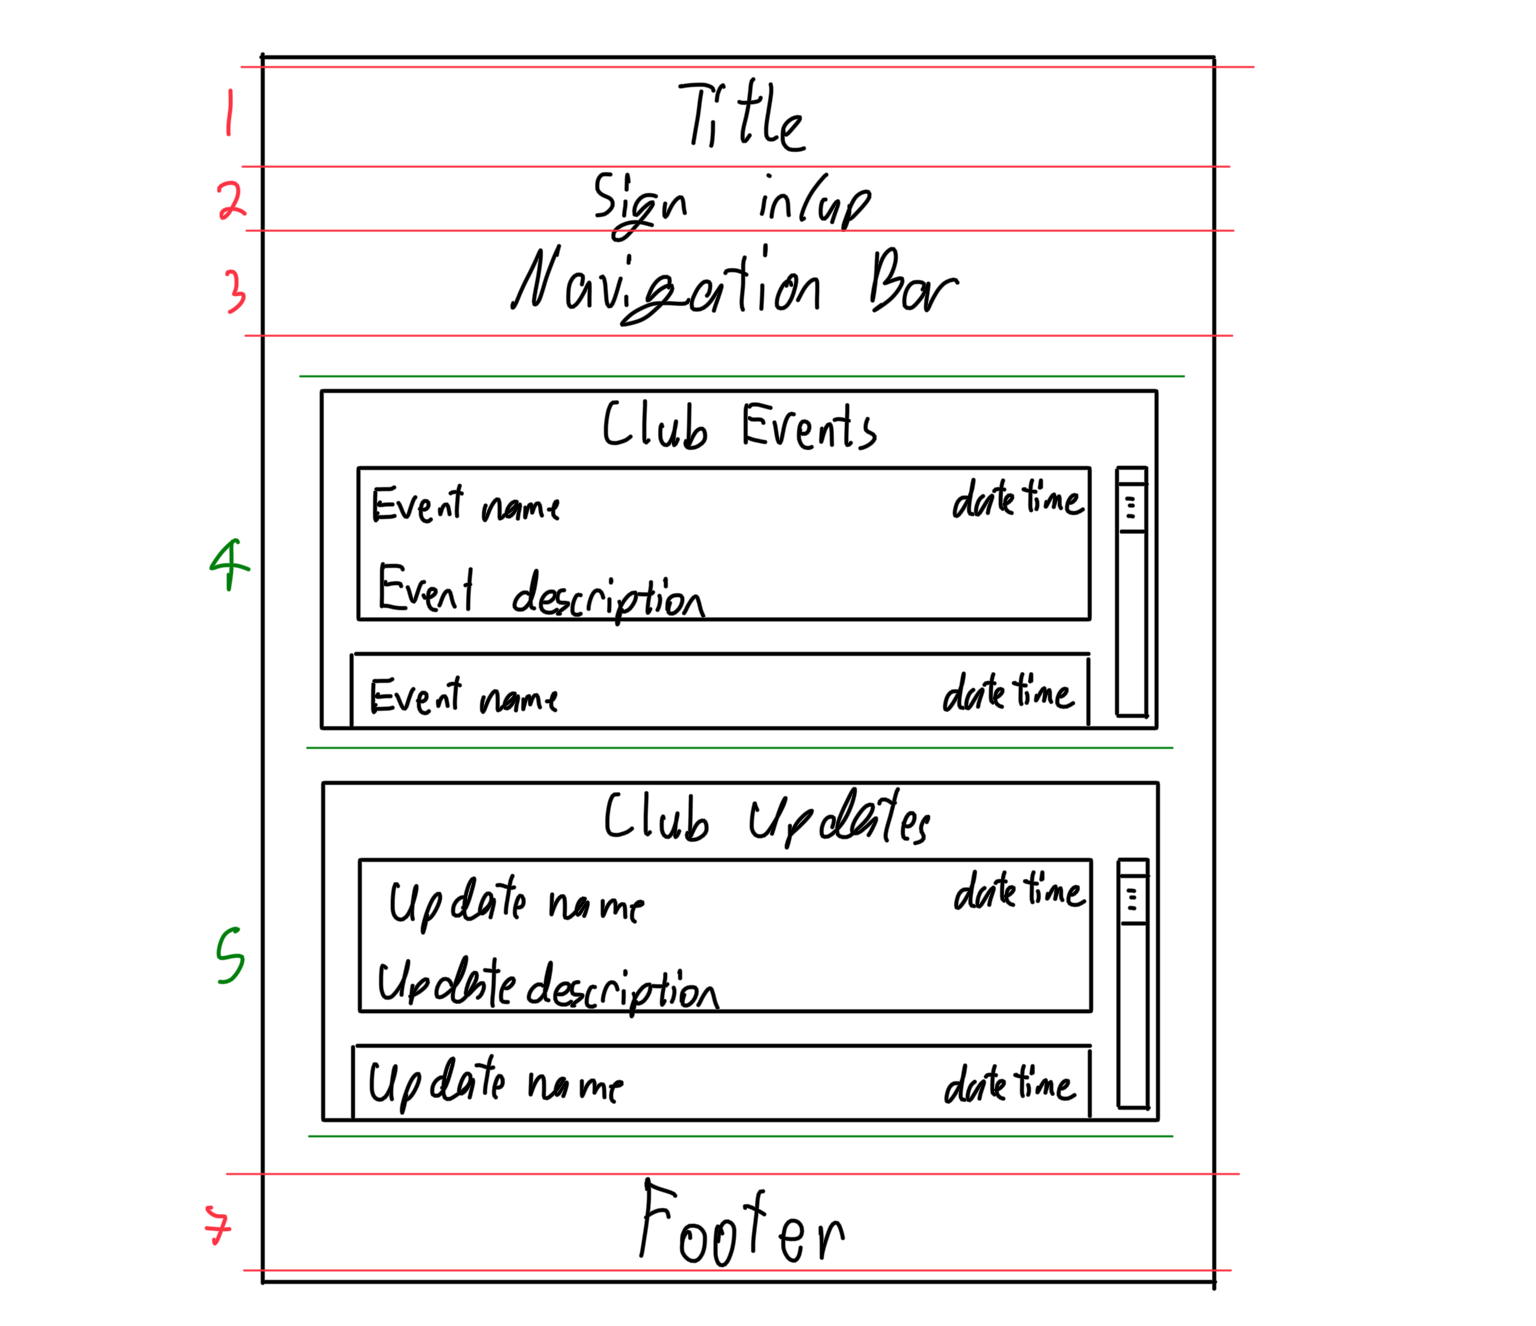 1 Title
2 Sign in/up
3 Navigation Bar
Club Events
Event name datetime
4
Event description
Event name datetime
Club Updates
Update name datetime
5
Update description
Update name datetime
7 Footer